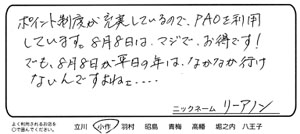 ポイント制度が充実しているので、PAOを利用
しています。8月8日は、マジで、お得です!
でも、8月8日が平日の年は、なかなか行け
ないんですよねェ....
ニックネーム リーアノン
よく利用されるお店を
○で囲んでください。 立川 小作 羽村 昭島 青梅 高幡 堀之内 八王子